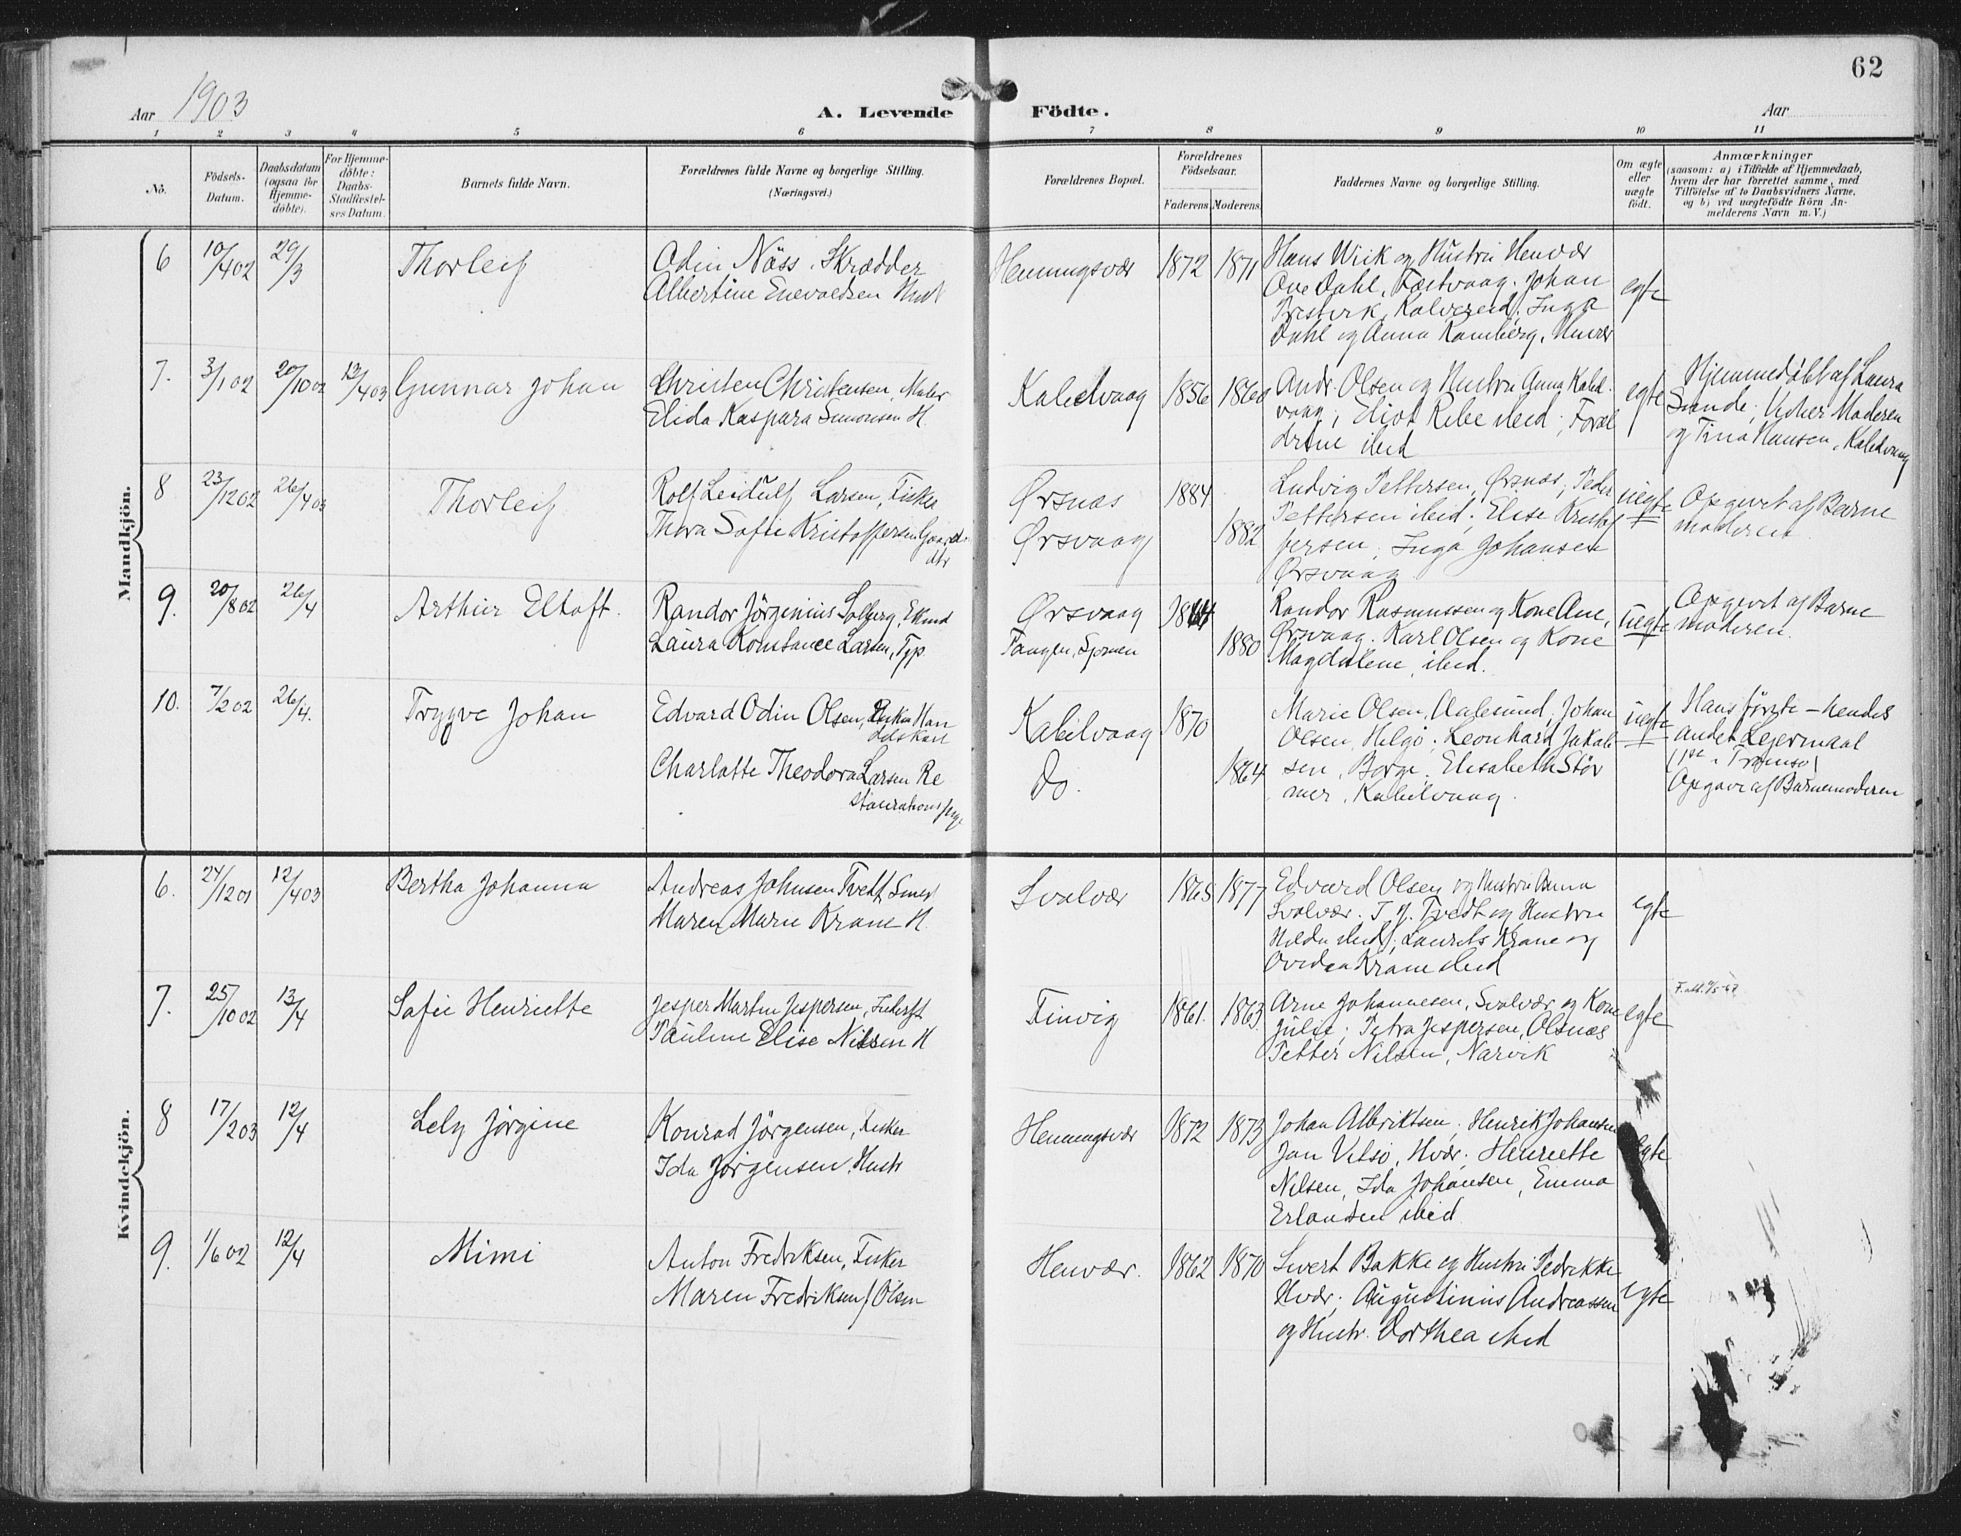 62
Aar 1903
A. Levende Födte.
Aar
1 2 3 4 5 6 7 8 9 10 11
No.
Födsels-Datum.
Daabsdatum (ogsaa for Hjemme-döbte).
For Hjemme-döbte: Daabs-Stadfæstel-ses Datum.
Barnets fulde Navn.
Forældrenes fulde Navne og borgerlige Stilling. (Næringsvei.)
Forældrenes Bopæl.
Forældrenes Födselsaar.
Faderens. Moderens.
Faddernes Navne og borgerlige Stilling.
Om ægte eller uægte födt.
Anmærkninger
(saasom: a) i Tilfælde af Hjemmedaab, hvem der har forrettet samme, med Tilföielse af to Daabsvidners Navne, og b) ved uægtefödte Börn An-melderens Navn m. V.)
Mandkjön.
6 10/4 02 29/3 Thorleif
Odin Näss, Skrædder
Albertine Enevoldsen Hust
Henningsvær 1872 1871
Hans Wiik og Hustru Henvær
Ove Dahl, Festvaag. Johan
Kalvereid, Inga
Dahl og Anna Ramberg, Henvær
egte
7. 3/1 02 20/10 02 13/4 03 Gunnar Johan
Christen Christensen, Maler
Elida Kaspara Simonsen H.
Kabelvaag 1856 1860
Andr. Olsen og Hustru Anna Kabel-
vaag; Eliot Ribe ibid; Foræl
drene ibid
egte
Hjemmedøbt af Laura
Sunde; Vidner Moderen
og Tina Hansen, Kabelvaag
8 23/12 02 26/4 03 Thorleif
Rolf Leidulf Larsen, Fisker
Thora Sofie Kristoffersen Gaard-
dtr
Ørsnæs 1884
Ørsvaag 1882
Ludvig Pettersen, Ørsnæs; Peder
Pettersen ibid; Elise Kristof
fersen; Inga Johansen
Ørsvaag
uegte
Opgivet af Barne
moderen.
9. 20/8 02 26/4 Arthur Eltoft.
Randor Jörgenius Solberg,
Laura Konstance Larsen,
Ørsvaag
Tangen, 1880
Randor Rasmussen og Kone Ane,
Ørsvaag. Karl Olsen og Kone
Magdalene, ibid.
uegte
Opgivet af Barne
moderen.
10. 7/2 02 26/4. Trygve Johan
Edvard Odin Olsen,
Charlotte Theodora Larsen Re
staurations
Kabelvaag 1870
Do. 1864
Marie Olsen, Aalesund; Johan
Olsen, Helgö; Leonhard Jakob-
sen, Borge; Elisabeth Stör
mer, Kabelvaag.
uegte
Hans første – hendes
andet Leiermaal
(1ste i Tromsö)
Opgave af Barnemoderen
Kvindekjön.
6. 24/12 01 12/4 03 Bertha Johanna
Andreas Johnsen Tvedt, Smed
Maren Marie Krane H.
Svolvær 1865 1877
Edvard Olsen og Hustru Anna
Svolvær. T. J. Tvedt og Hustru
Hilda ibid; Laurits Krane og
Ovidia Krane ibid
egte
7. 25/10 02 13/4 Sofie Henriette
Jesper Martin Jespersen,
Pauline Elise Nilsen H
Finvig 1861. 1863
Arne Johannesen, Svolvær og Kone
Julie; Petra Jespersen, Olsnæs
Petter Nilsen, Narvik
egte
8 17/2 03 12/4 Lely Jørgine
Konrad Jørgensen, Fisker
Ida Jørgensen, Hustr
Henningsvær 1872 1873
Johan Albriktsen; Henrik Johansen
Jan Vetsö, Hvær; Henriette
Nilsen, Ida Johansen, Emma
Erlandsen ibid
egte
9. 1/6 02 12/4 Mimi
Anton Fredriksen, Fisker
Maren Fredriksen f. Olsen
Henvær. 1862 1870
Sivert Bakke og Hustru Pedrikke
Hvær; Augustinius Andreassen
og Hustr. Dorthea ibid
egte